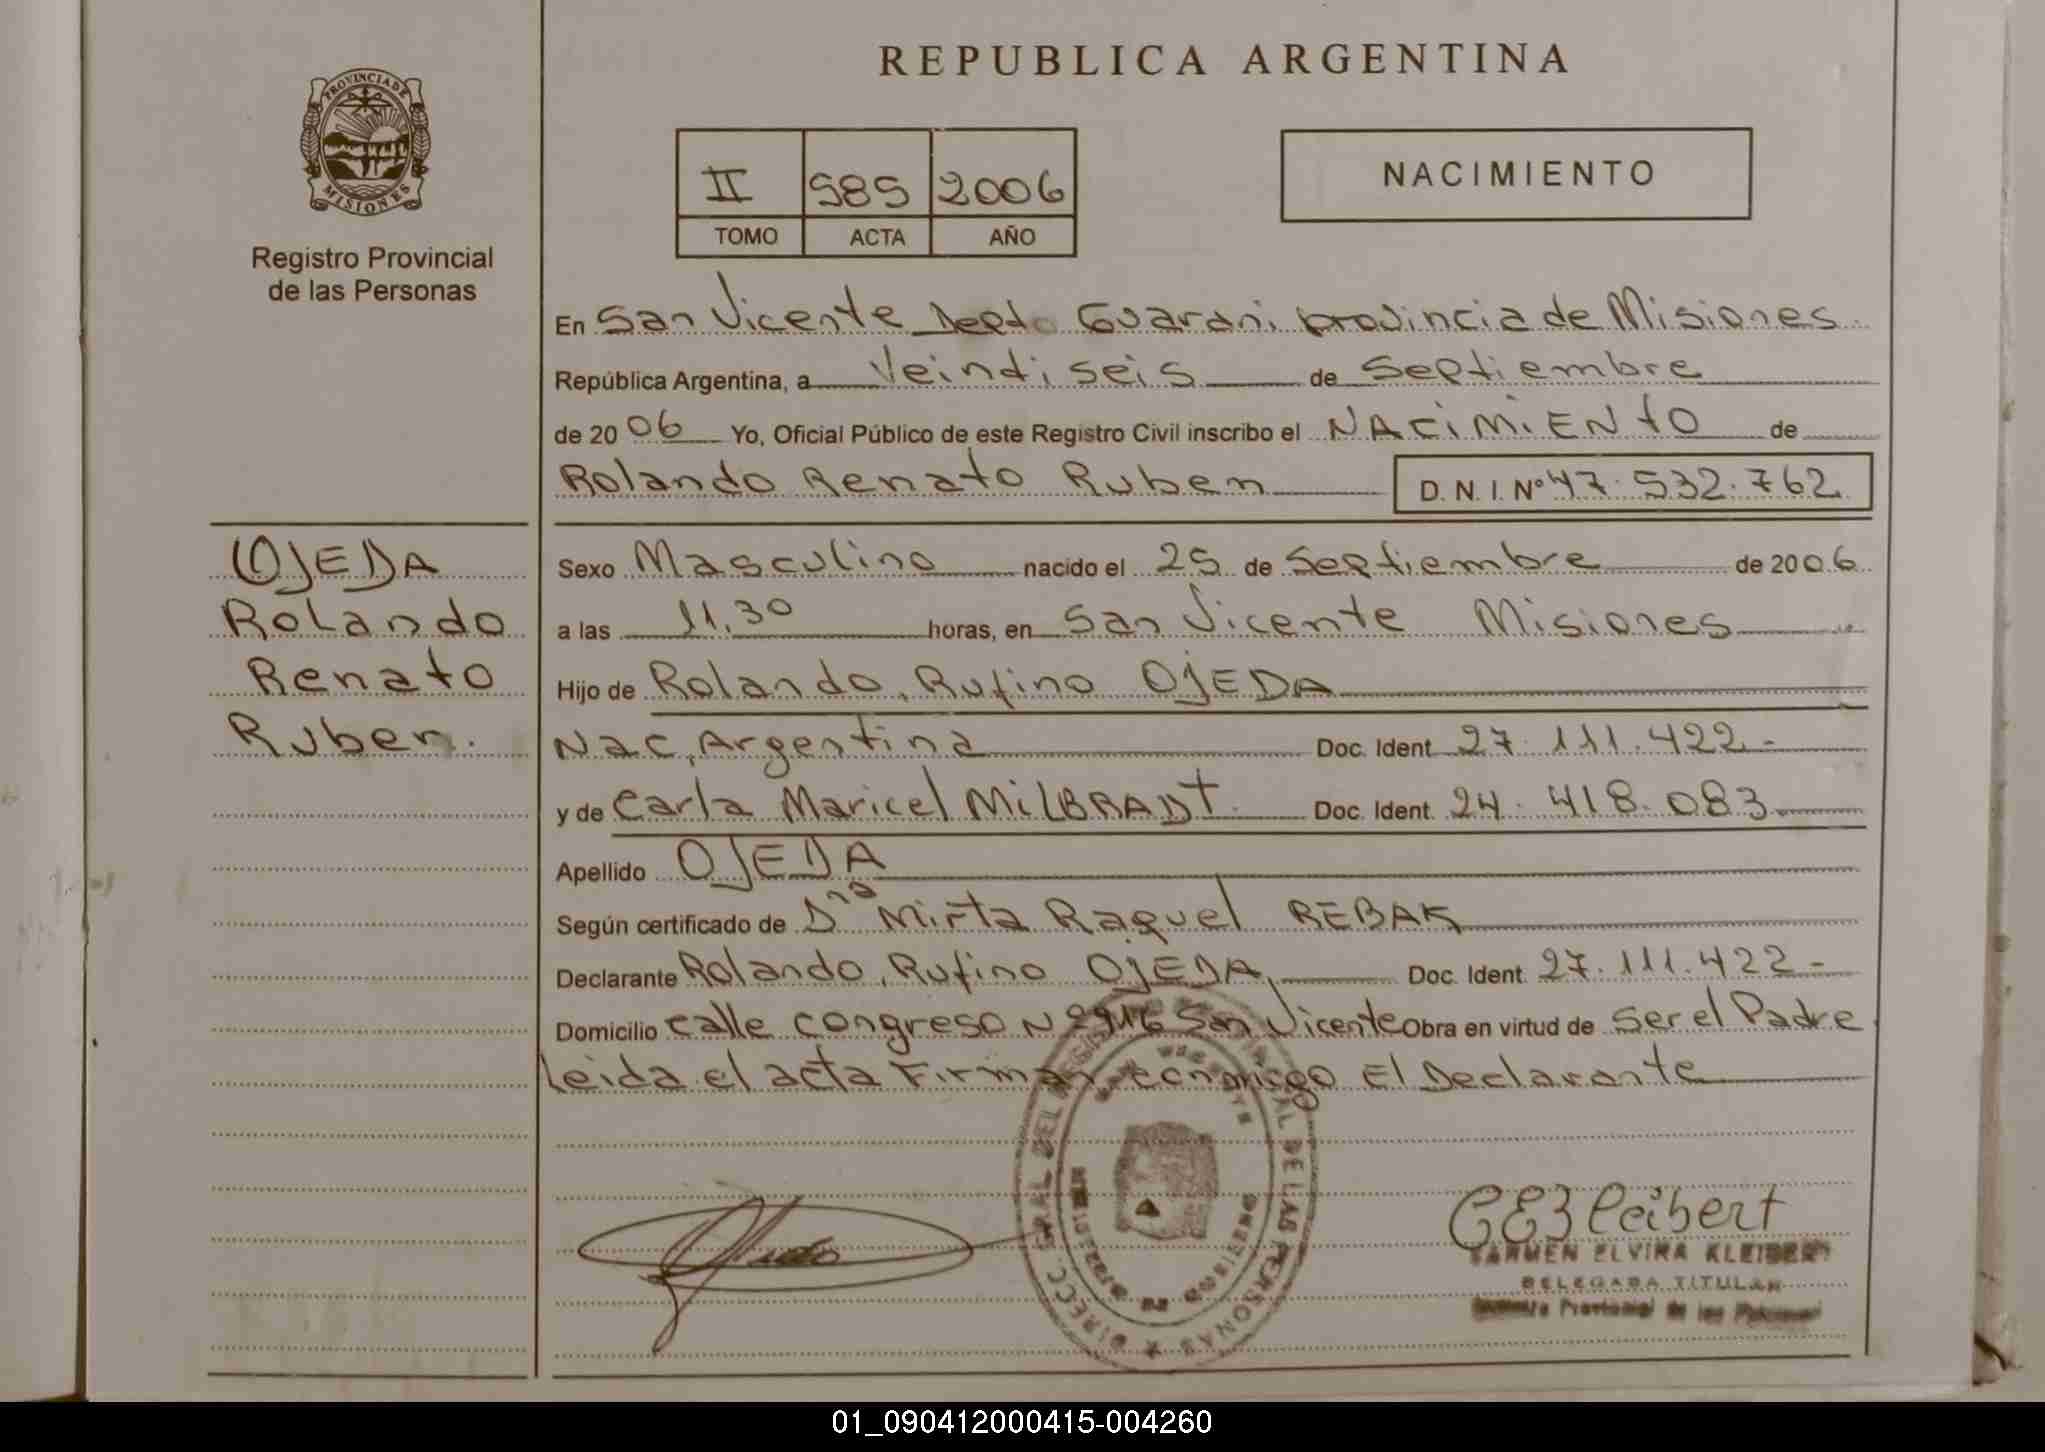 PROVINCIA DE
MISIONES
Registro Provincial
de las Personas
REPUBLICA ARGENTINA
II 585 2006
TOMO ACTA AÑO
NACIMIENTO
En San Vicente Depto Guarani provincia de Misiones
República Argentina, a Veindi seis de Septiembre
de 2006 Yo, Oficial Público de este Registro Civil inscribo el NACIMIENTO de
Rolando Renato Ruben D. N. I. Nº 47.532.762
OJEDA
Rolando
Renato
Ruben.
Sexo Masculino nacido el 25 de Septiembre de 2006
a las 11,30 horas, en San Vicente Misiones
Hijo de Rolando, Rufino OJEDA
Nac, Argentina Doc. Ident 27.111.422-
y de Carla Maricel MILBRADT. Doc. Ident. 24.418.083
Apellido OJEDA
Según certificado de Dña Mirta Raquel REBAK
Declarante Rolando, Rufino OJEDA, Doc. Ident. 27.111.422-
Domicilio calle congreso Nº San Vicente Obra en virtud de Ser el Padre
Leida el acta Firman conmigo El Declarante
DIRECC. GRAL DEL REGISTRO PROVINCIAL DE LAS PERSONAS
SAN VICENTE
CEKleibert
CARMEN ELVIRA KLEIBERT
DELEGADA TITULAR
Registro Provincial de las Personas
01_090412000415-004260